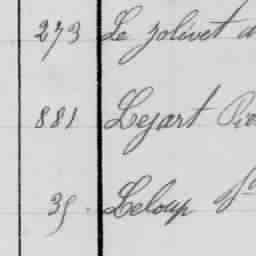 273 Le Jolivet
881 Lejart
35 Leloup